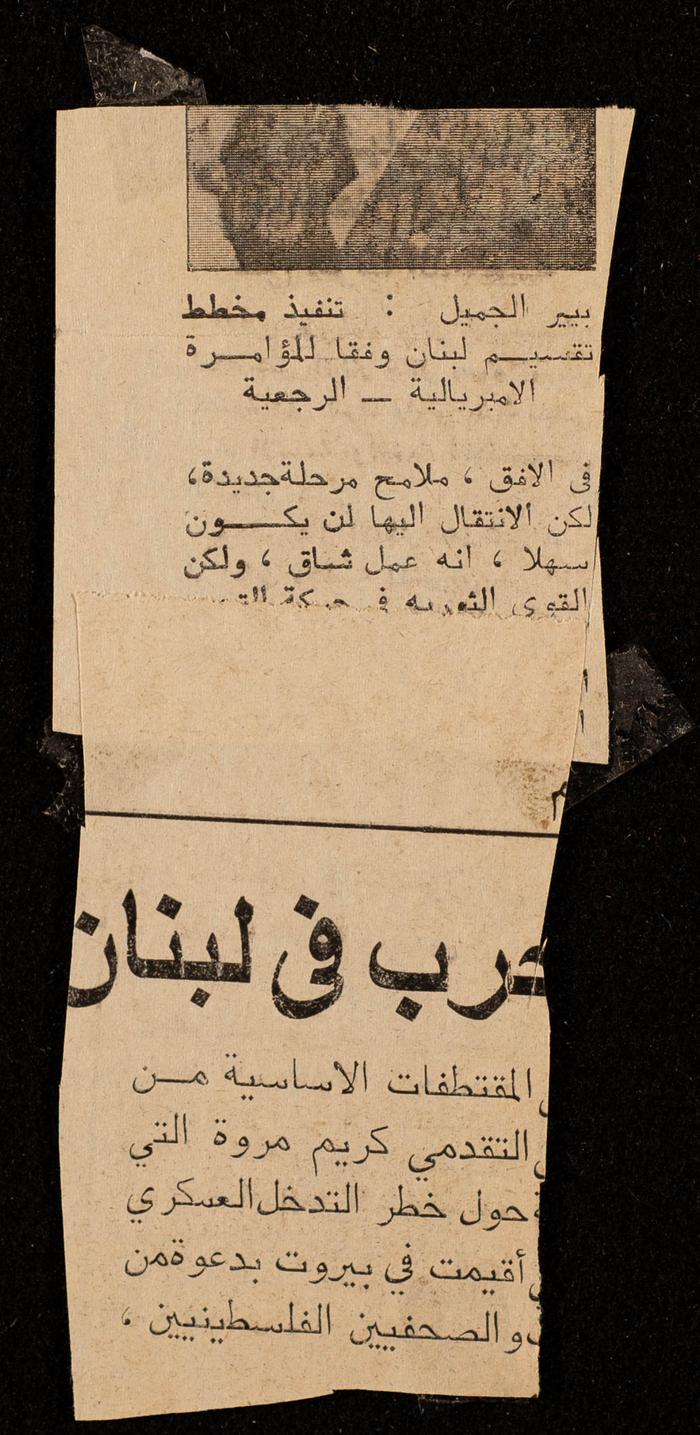 بيير الجميل : تنفيذ مخطط
تقسيم لبنان وفقا للمؤامرة
الامبريالية ــ الرجعية
فى الافق ، ملامح مرحلةجديدة،
لكن الانتقال اليها لن يكون
سهلا ، انه عمل شاق ، ولكن
القوى الثوريه في حركة
م
فى لبنان
المقتطفات الاساسية من
التقدمي كريم مروة التي
حول خطر التدخل العسكري
أقيمت في بيروت بدعوةمن
والصحفيين الفلسطينيين ،